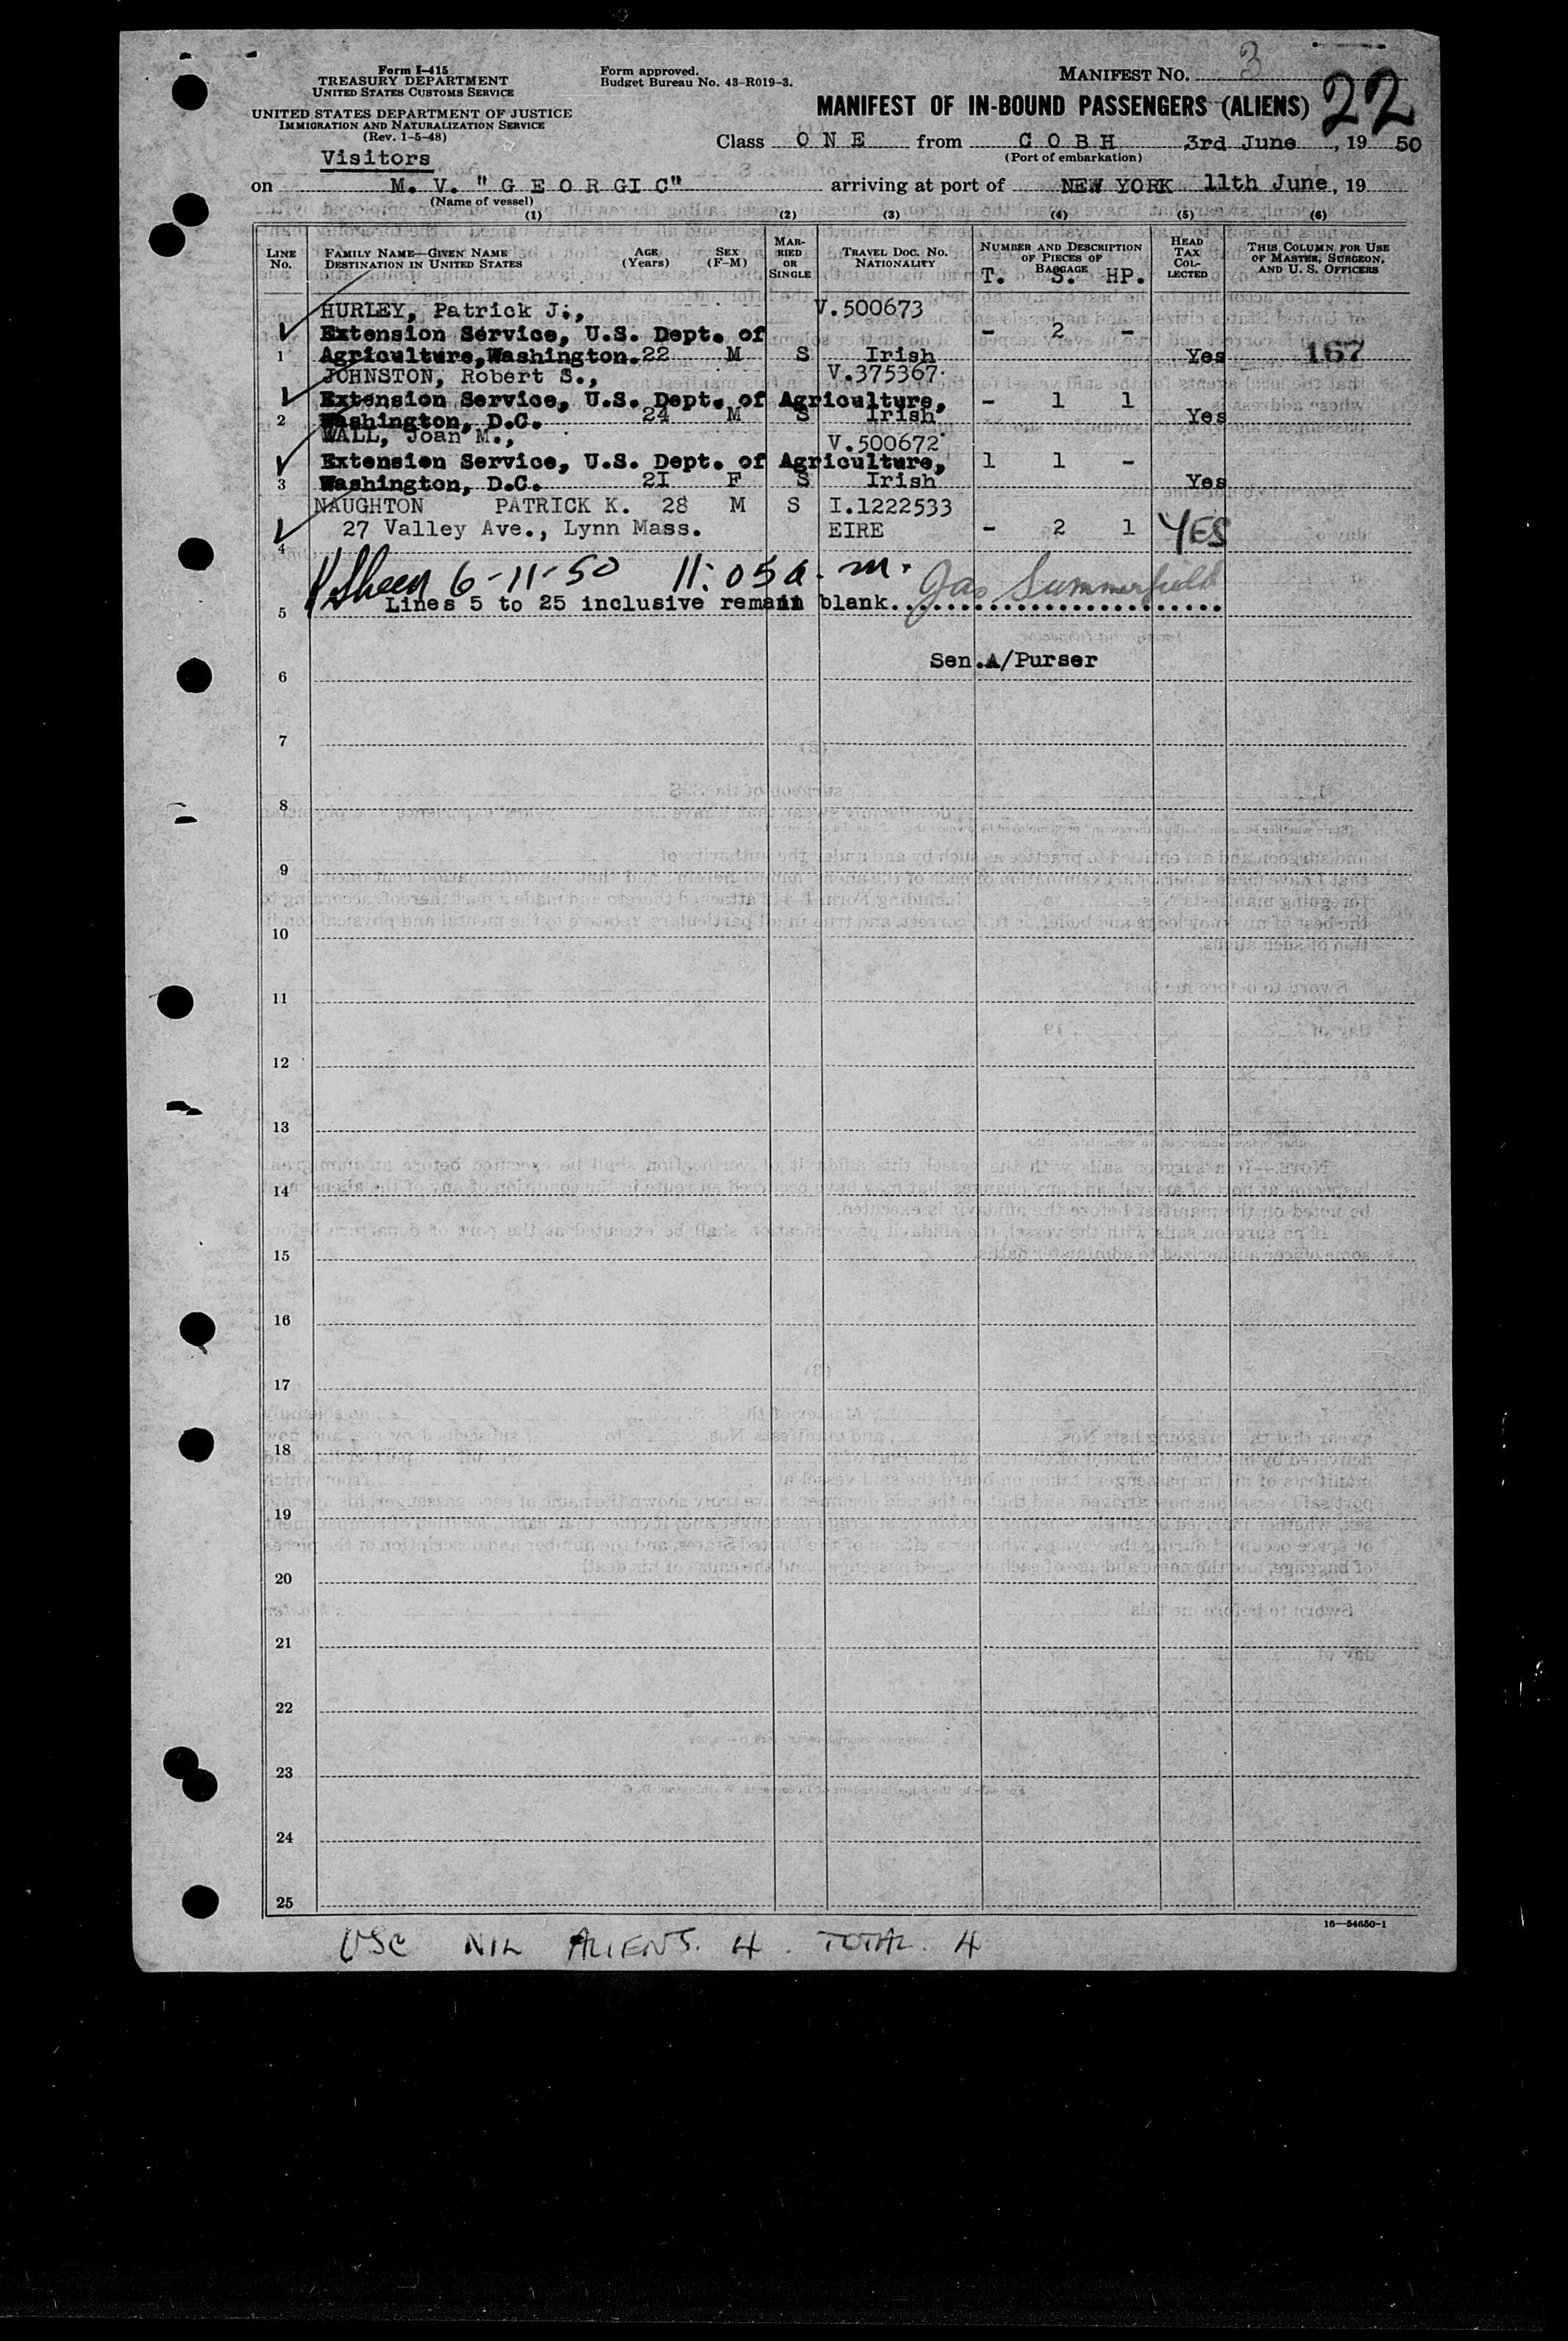 Form I-415
TREASURY DEPARTMENT
UNITED STATES CUSTOMS SERVICE
UNITED STATES DEPARTMENT OF JUSTICE
IMMIGRATION AND NATURALIZATION SERVICE
(Rev. 1-5-48)
Form approved.
Budget Bureau No. 43-R019-3.
MANIFEST NO. 3
22
MANIFEST OF IN-BOUND PASSENGERS (ALIENS)
Class O N E from C O B H 3rd June, 19 50
(Port of embarkation)
Visitors
on M. V. "G E O R G I C" arriving at port of NEW YORK 11th June, 19
(Name of vessel)
(1) (2) (3) (4) (5) (6)
LINE No.
FAMILY NAME—GIVEN NAME
DESTINATION IN UNITED STATES
AGE (Years)
SEX (F-M)
MARRIED OR SINGLE
TRAVEL DOC. NO.
NATIONALITY
NUMBER AND DESCRIPTION OF PIECES OF BAGGAGE
T. S. HP.
HEAD TAX COLLECTED
THIS COLUMN FOR USE OF MASTER, SURGEON, AND U. S. OFFICERS
HURLEY, Patrick J., V.500673
Extension Service, U.S. Dept. of - 2 -
1 Agriculture, Washington. 22 M S Irish Yes 167
JOHNSTON, Robert S., V.375367
Extension Service, U.S. Dept. of Agriculture, - 1 1
2 Washington, D.C. 24 M S Irish Yes
WALL, Joan M., V.500672
Extension Service, U.S. Dept. of Agriculture, 1 1 -
3 Washington, D.C. 21 F S Irish Yes
NAUGHTON PATRICK K. 28 M S I.1222533
27 Valley Ave., Lynn Mass. EIRE - 2 1 YES
4
6-11-50 11:05 a.m. Jas Summerfield
5 Lines 5 to 25 inclusive remain blank.
Sen.A/Purser
6
7
8
9
10
11
12
13
14
15
16
17
18
19
20
21
22
23
24
25
16—54650-1
USC NIL ALIENS. 4. TOTAL. 4